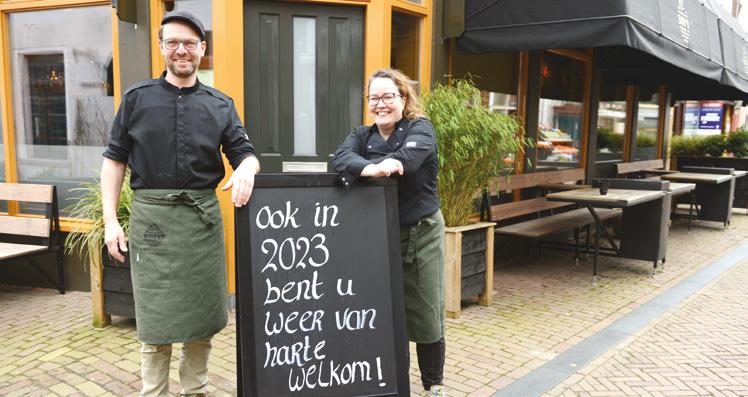 ook in
2023
bent u
weer van
harte
welkom!